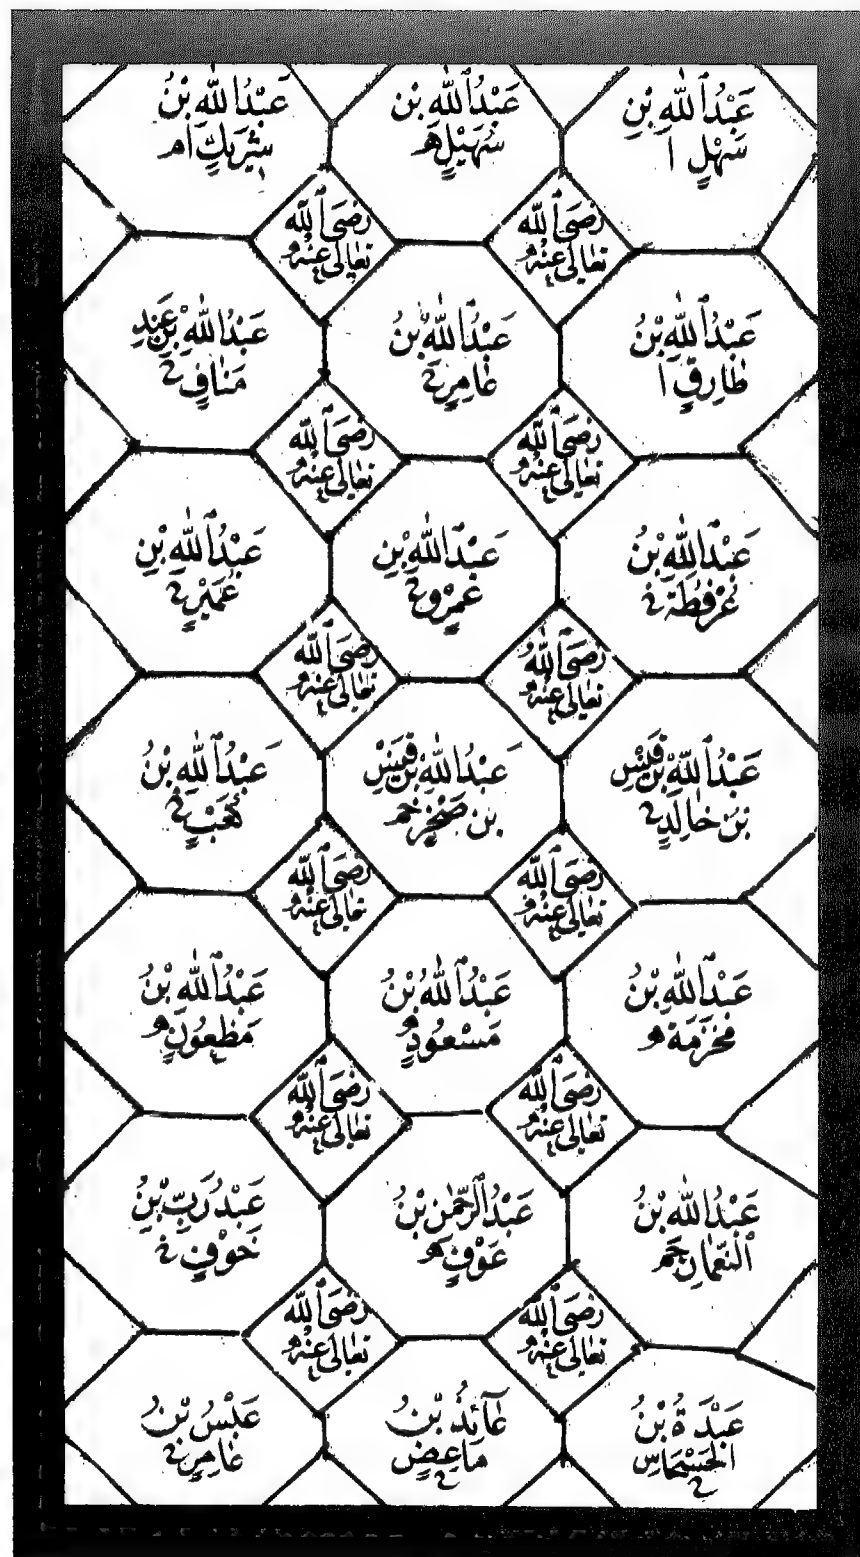 عَبْدُ ٱللّٰهِ بْنِ
سَهْلٍ ا
عَبْدُ ٱللّٰهِ بْن
سُهَيْلٍ
عَبْدُ ٱللّٰهِ بْنُ
شَرِيكٍ ا
رَضِىَ ٱللّٰه
تعَالىٰ عَنْهُ
رَضِىَ ٱللّٰه
تعَالىٰ عَنْهُ
عَبْدُ ٱللّٰهِ بْنُ
طَارِقٍ ا
عَبْدُ ٱللّٰهِ بْنُ
عَامِرٍ
عَبْدُ ٱللّٰهِ بْنِ عَبْدِ
مَنَافٍ
رَضِىَ ٱللّٰه
تعَالىٰ عَنْهُ
رَضِىَ ٱللّٰه
تعَالىٰ عَنْهُ
عَبْدُ ٱللّٰهِ بْنُ
عُرْفُطَةَ
عَبْدُ ٱللّٰهِ بْنِ
عَمْرٍو
عَبْدُ ٱللّٰهِ بْنِ
عُمَيْرٍ
رَضِىَ ٱللّٰه
تعَالىٰ عَنْهُ
رَضِىَ ٱللّٰه
تعَالىٰ عَنْهُ
عَبْدُ ٱللّٰهِ بْن قَيْسِ
بْنِ خَالِدٍ
عَبْدُ ٱللّٰهِ بْن قَيْسِ
بْن صَخْرٍ
عَبْدُ ٱللّٰهِ بْنُ
كَعْبٍ
رَضِىَ ٱللّٰه
تعَالىٰ عَنْهُ
رَضِىَ ٱللّٰه
تعَالىٰ عَنْهُ
عَبْدُ ٱللّٰهِ بْنُ
مَخْرَمَة
عَبْدُ ٱللّٰهِ بْنُ
مَسْعُودٍ
عَبْدُ ٱللّٰهِ بْنُ
مَظْعُونٍ
رَضِىَ ٱللّٰه
تعَالىٰ عَنْهُ
رَضِىَ ٱللّٰه
تعَالىٰ عَنْهُ
عَبْدُ ٱللّٰهِ بْنُ
ٱلنُّعْمَانِ
عَبْدُ ٱلرَّحْمٰنِ بْنُ
عَوْفٍ
عَبْدُ رَبِّ بْنُ
رَضِىَ ٱللّٰه
تعَالىٰ عَنْهُ
رَضِىَ ٱللّٰه
تعَالىٰ عَنْهُ
عَبْدَةُ بْنُ
الْحَسْحَاسِ
عَآئِذُ بْنُ
مَاعِصٍ
عَبْسُ بْنُ
عَامِرٍ